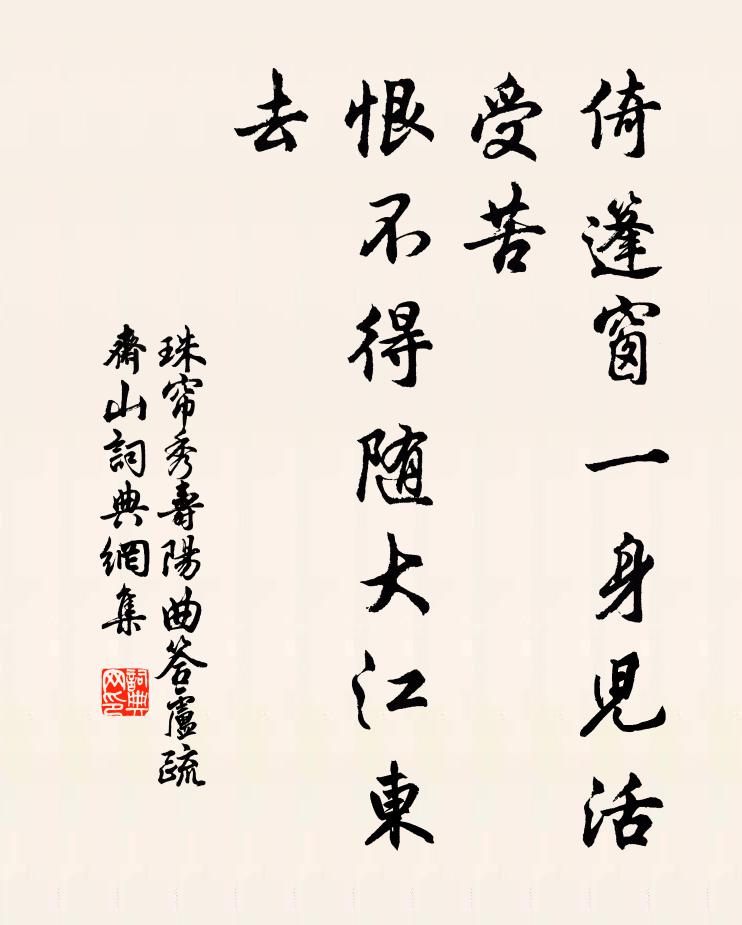 倚篷窗一身兒活
受苦
恨不得随大江東
去
珠帘秀壽陽曲答盧疏
齋山詞典網集
詞典
网印